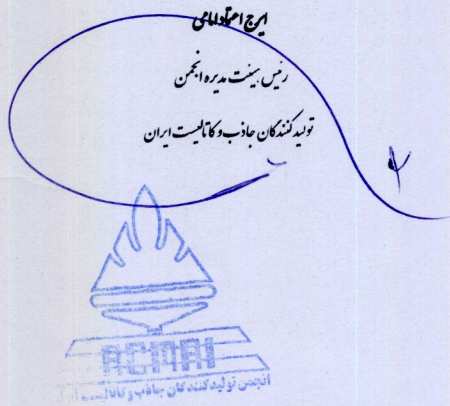 ایرج اعتمادامامی
رئیس هیئت مدیره انجمن
تولیدکنندگان جاذب و کاتالیست ایران
ACMAI
انجمن تولیدکنندگان جاذب و کاتالیست